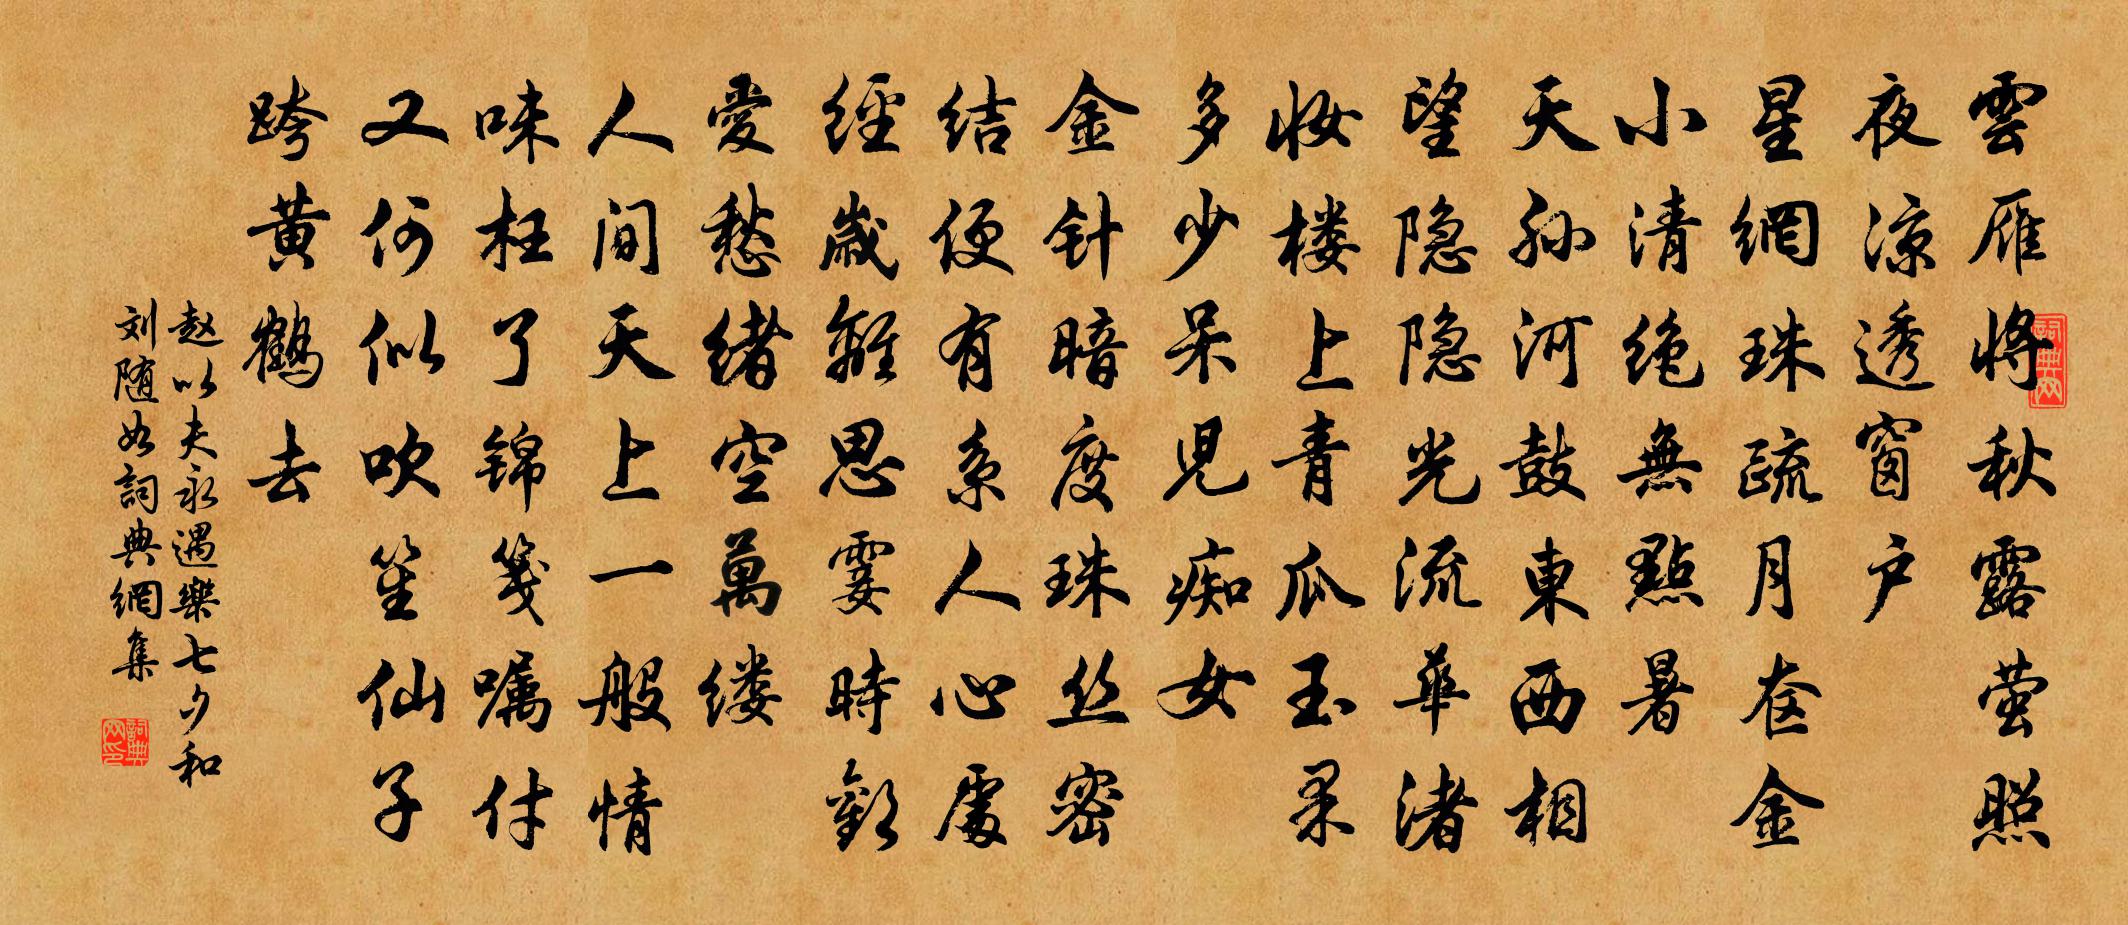 雲雁将秋露萤照
夜涼透窗户
星網珠疏月奁金
小清绝無點暑
天孙河鼓東西相
望隐隐光流華渚
妆楼上青瓜玉果
多少呆児痴女
金针暗度珠丝密
结便有系人心處
經歲離思霎時歡
愛愁绪空萬缕
人间天上一般情
味枉了锦笺嘱付
又何似吹笙仙子
跨黄鶴去
赵以夫永遇樂七夕和
刘随如詞典網集
詞典网
詞典网印